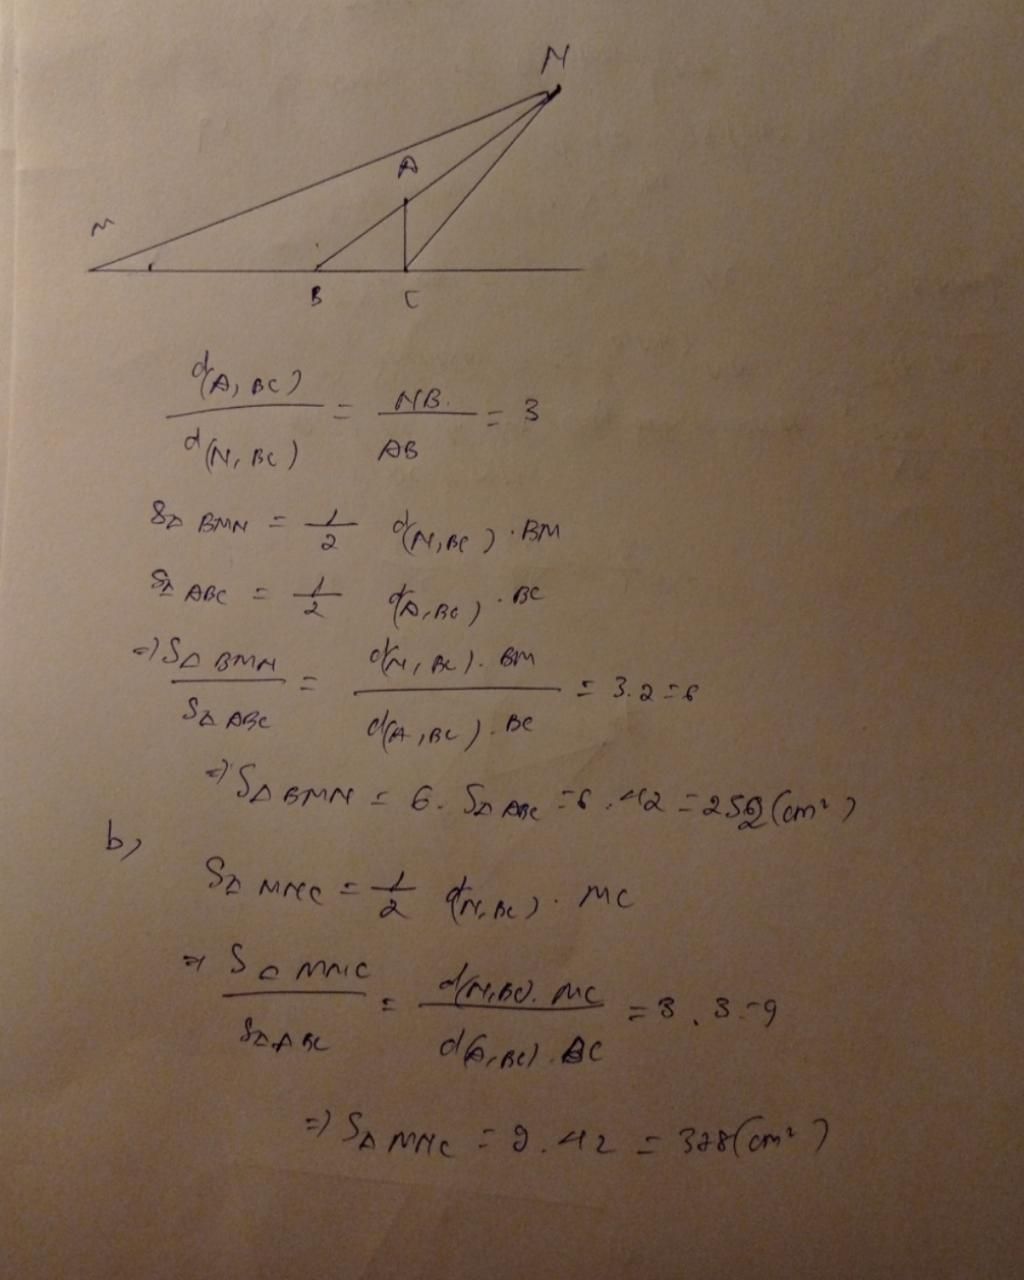 N
A
M
B C
d(A, BC) / d(N, BC) = NB / AB = 3
SΔ BMN = 1/2 d(N, BC) . BM
SΔ ABC = 1/2 d(A, BC) . BC
=> SΔ BMN / SΔ ABC = d(N, BC) . BM / d(A, BC) . BC = 3.2 = 6
=> SΔ BMN = 6. SΔ ABC = 6 . 42 = 252 (cm²)
b,
SΔ MNC = 1/2 d(N, BC) . MC
=> SΔ MNC / SΔ ABC = d(N, BC) . MC / d(A, BC) . BC = 3 . 3 = 9
=> SΔ MNC = 9 . 42 = 378 (cm²)